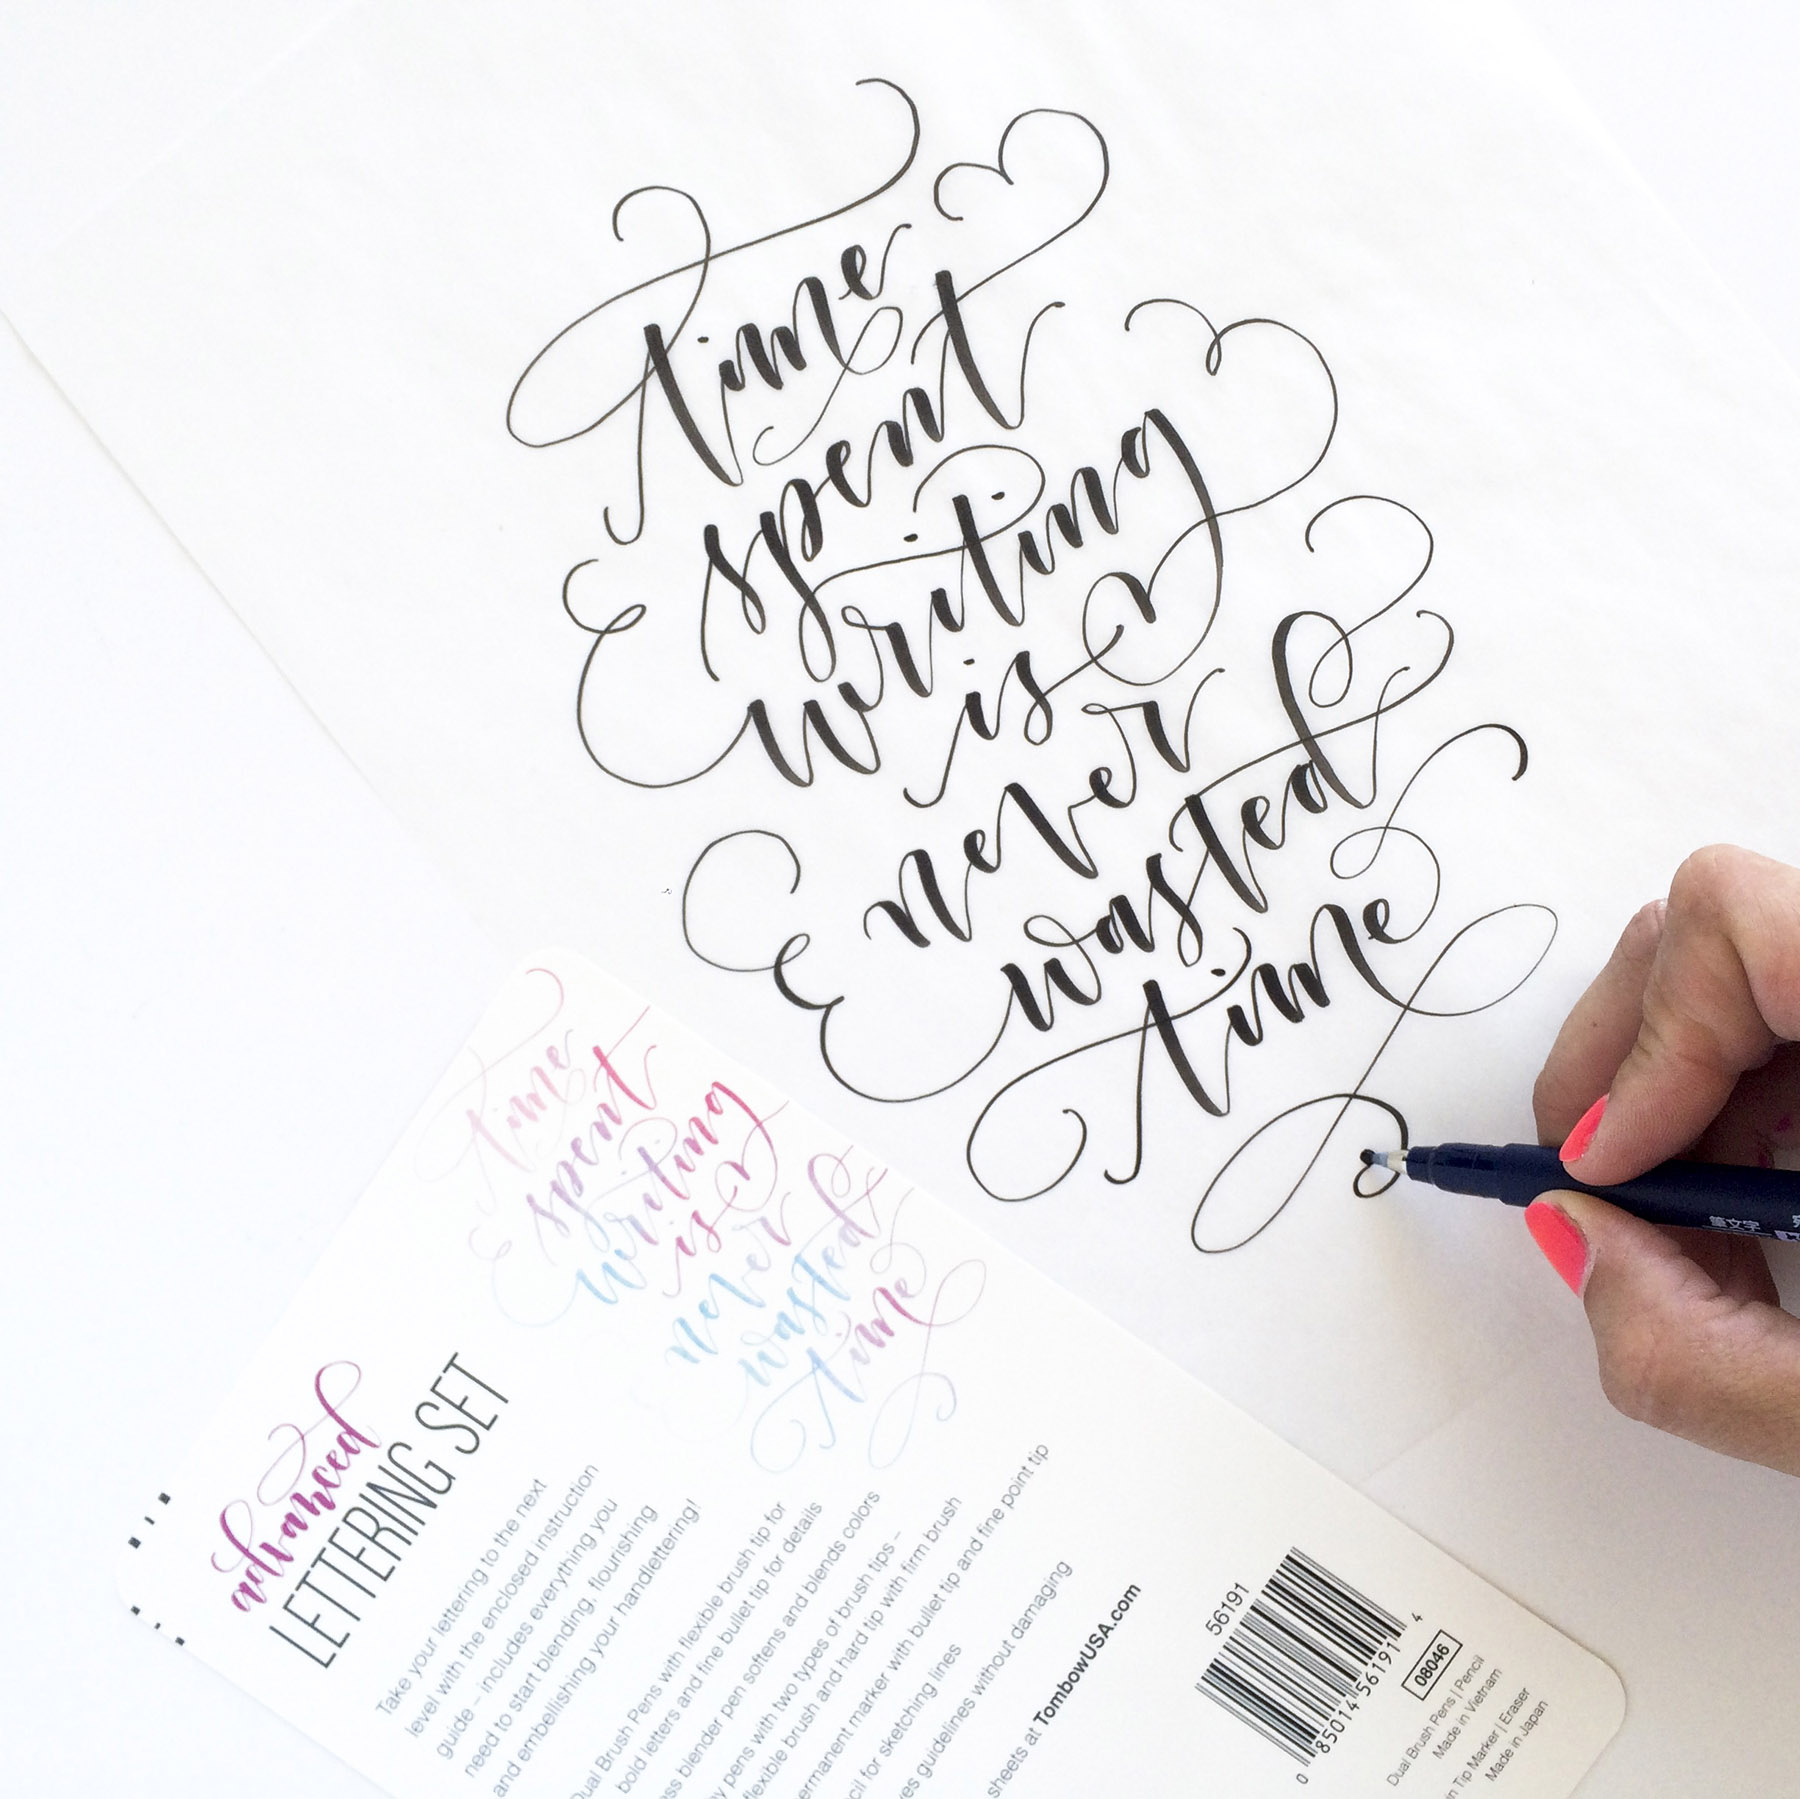 time
spent
writing
is
never
wasted
time
time
spent
writing
is
never
wasted
time
advanced
LETTERING SET
Take your lettering to the next
level with the enclosed instruction
guide – includes everything you
need to start blending, flourishing
and embellishing your handlettering!
Dual Brush Pens with flexible brush tip for
bold letters and fine bullet tip for details
blender pen softens and blends colors
pens with two types of brush tips –
flexible brush and hard tip with firm brush
marker with bullet tip and fine point tip
for sketching lines
guidelines without damaging
sheets at TombowUSA.com
56191
0 85014 56191 4
08046
Dual Brush Pens | Pencil
Made in Vietnam
Tip Marker | Eraser
Made in Japan
筆文字